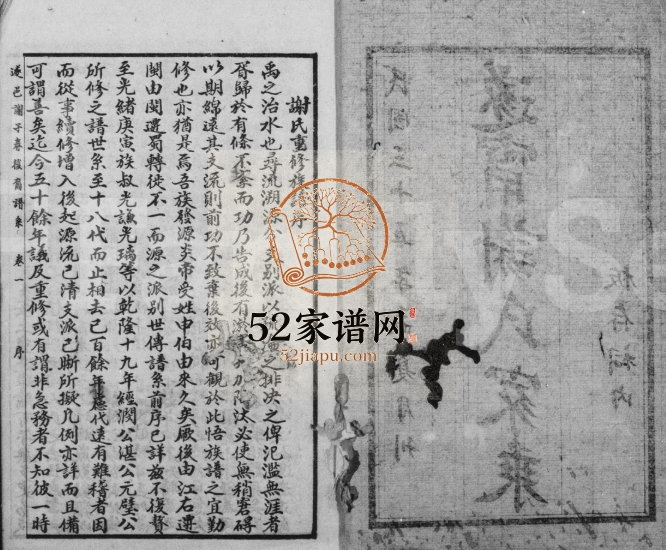 遂寧謝氏家乘
民國三十五年
板存祠內
謝氏重修族
禹之治水也 流溯源 別派以 之排決之俾氾濫無涯者
胥歸於有條不紊而功乃告成後有 加陶汰必使無稍窒碍
以期綿遠其支流則前功不致棄後效亦可觀於此悟族譜之宜勤
修也亦猶是焉吾族發源炎帝受姓申伯由來久矣厥後由江右遷
閩由閩遷蜀轉徙不一而源之派別世傳譜系前序已詳茲不復贅
至光緒庚寅族叔光謙光璃等以乾隆十九年經潤公湛公元璧公
所修之譜世系至十八代而止相去已百餘年慮代遠有難稽者因
而從事續修增入後起源流已清支派已晰所擬凡例亦詳而且備
可謂善矣迄今五十餘年議及重修或有謂非急務者不知彼一時
遂邑謝子春後裔譜系 卷一 序
52家谱网
52jiapu.com